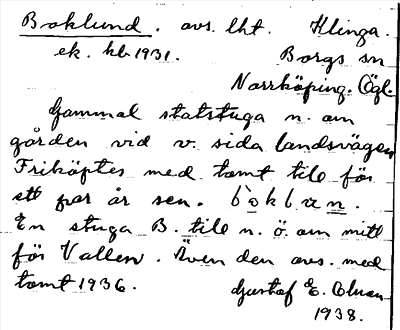 Boklund. avs. lht. Klinga.
ek. kb 1931. Borgs sn
Norrköping. Ögl.
Gammal statstuga n. om
gården vid v. sida landsvägen
Friköptes med tomt till för
ett par år sen. bok lun.
En stuga B. till n. ö. om mitt
för Vallen. Även den avs. med
tomt 1936. Gustaf E. Olsson
1938.